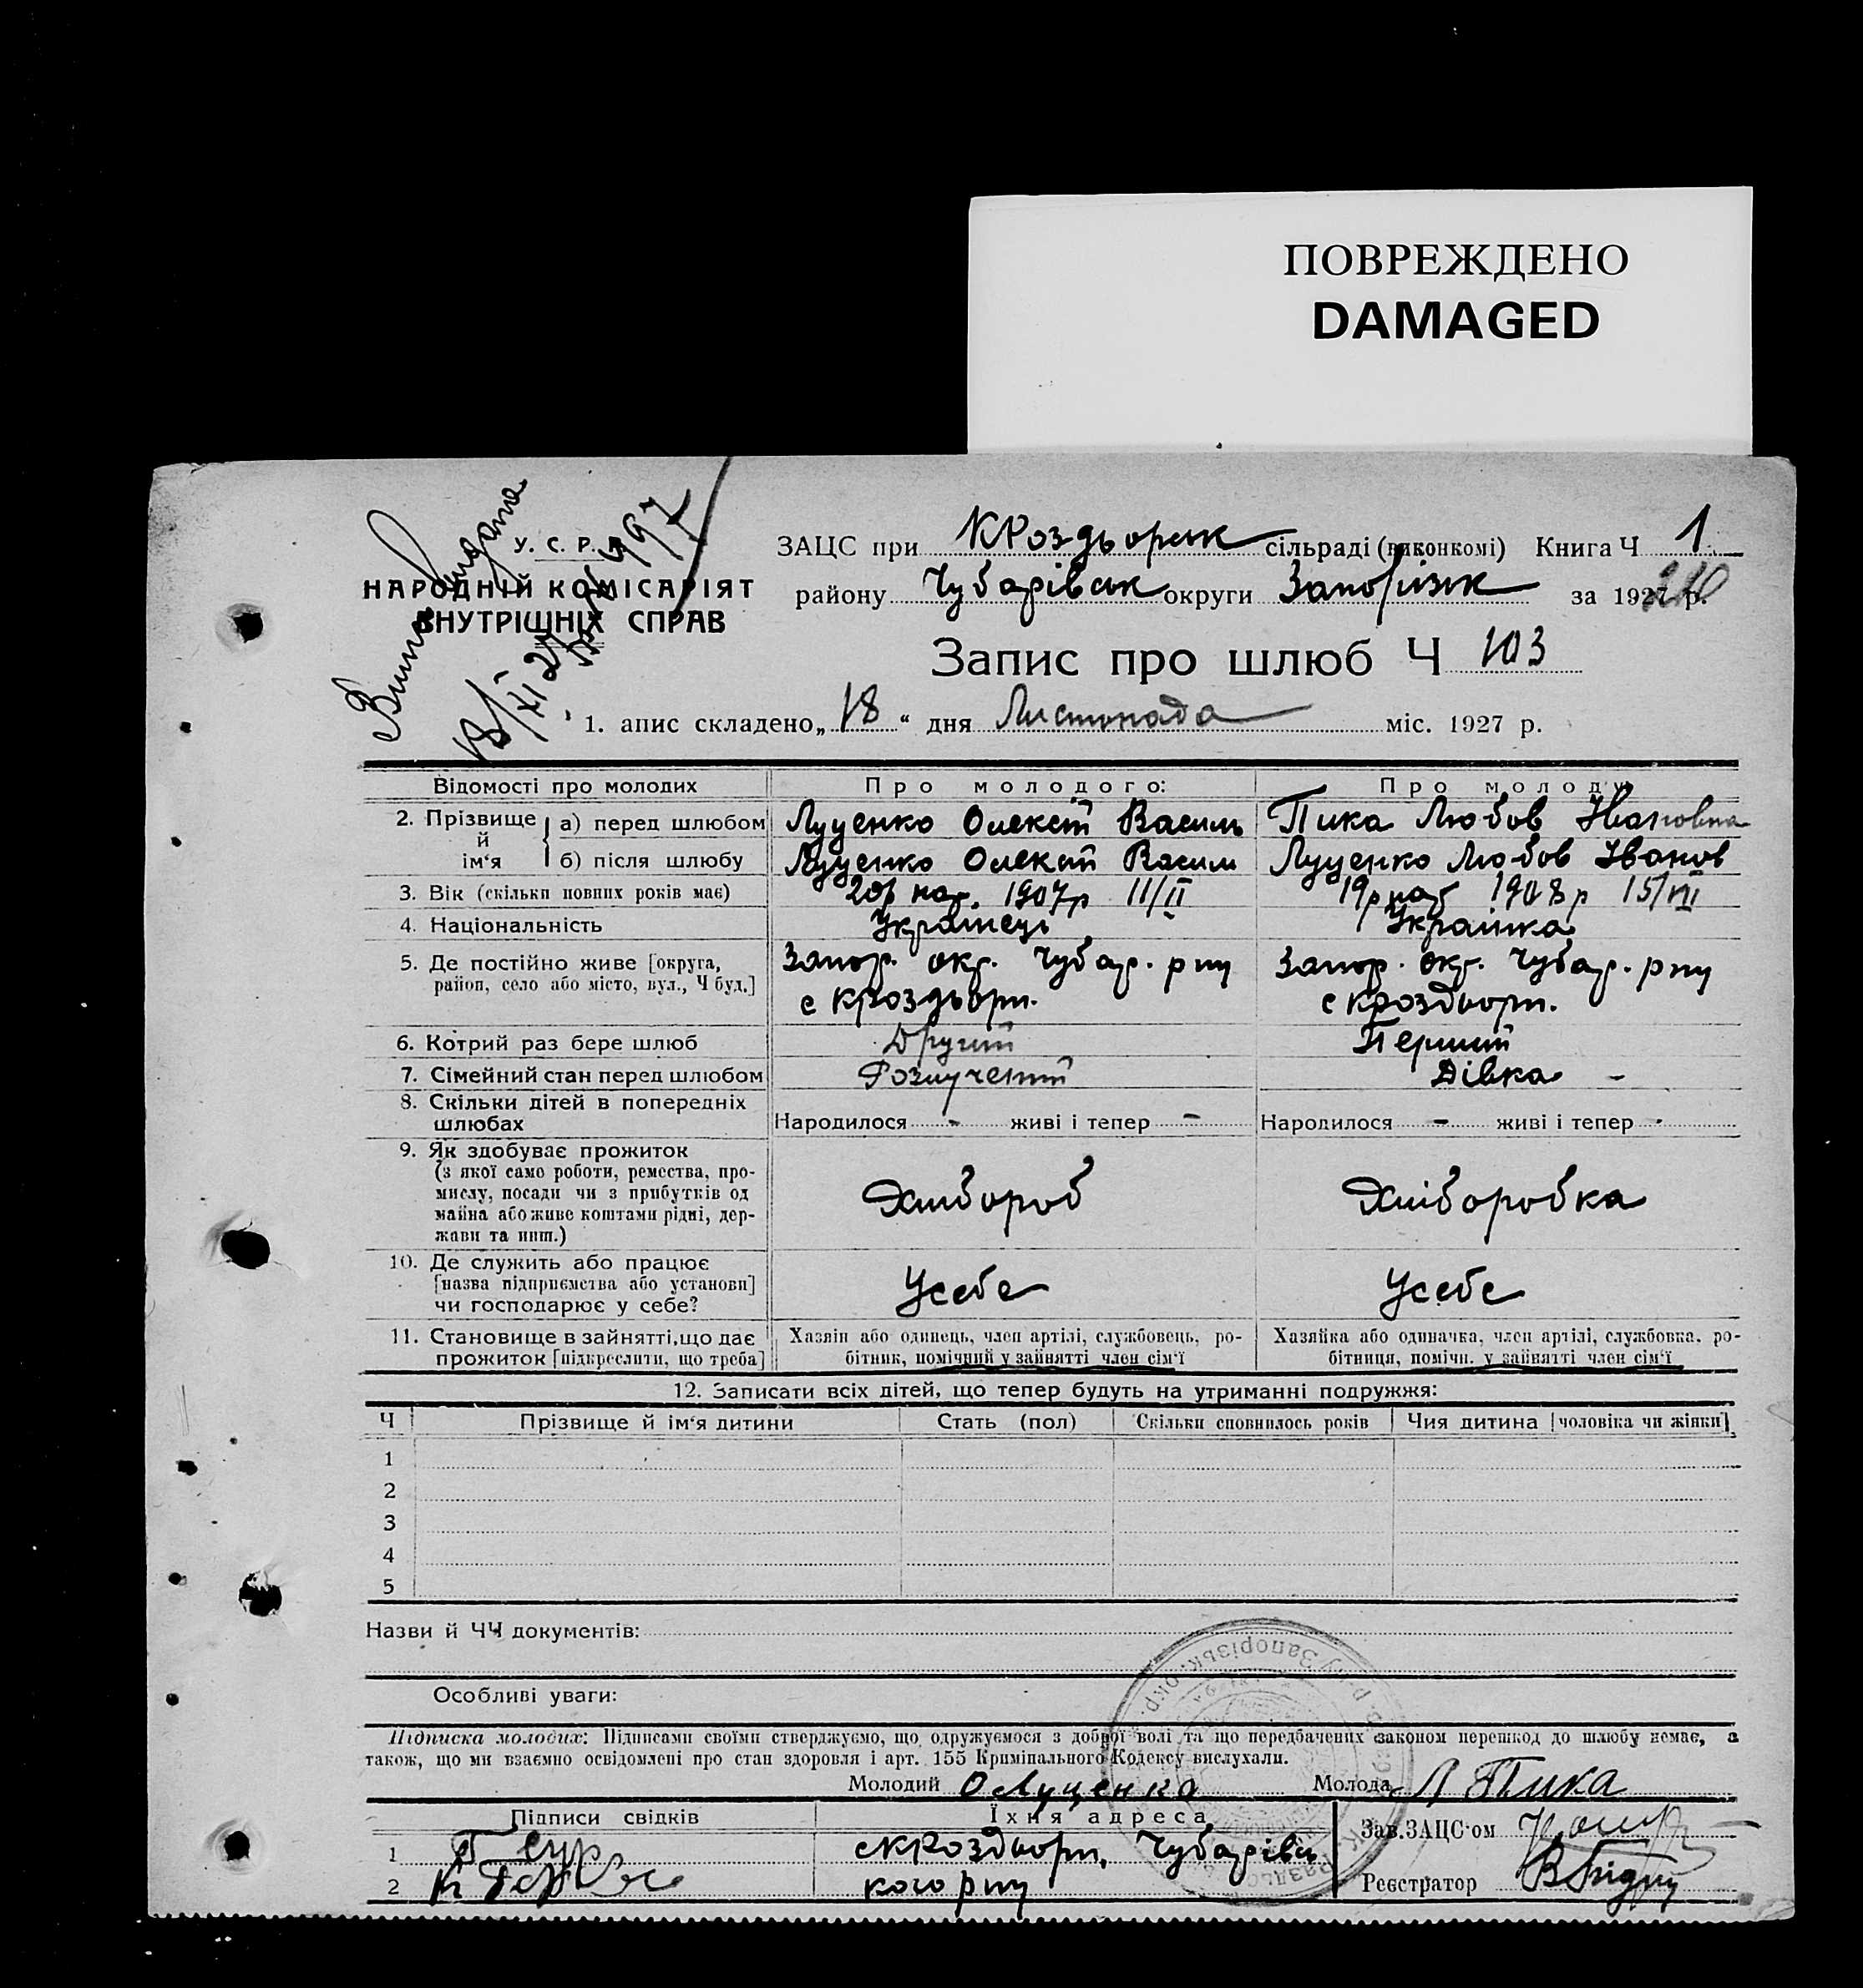 ПОВРЕЖДЕНО
DAMAGED
У. С. Р. Р.
НАРОДНІЙ КОМІСАРІЯТ
ВНУТРІШНІХ СПРАВ
Видана
18/XI 27
4997
ЗАЦС при КРоздьорськ сільраді (виконкомі) Книга Ч 1
району Чубарівськ округи Запорізьк за 1927 р.
Запис про шлюб Ч 103
1. апис складено „18“ дня Листопада міс. 1927 р.
Відомості про молодих Про молодого: Про молоду:
2. Прізвище й ім‘я а) перед шлюбом Луценко Олексій Василь Пика Любов Івановна
б) після шлюбу Луценко Олексій Васил Луценко Любов Іванов
3. Вік (скільки повних років має) 20р нар. 1907р 11/II 19р нар 1908р 15/VII
4. Національність Українець Українка
5. Де постійно живе [округа, район, село або місто, вул., Ч буд.] Запор. окр. Чубар. р ну Запор. окр. Чубар. р ну
с Кроздьорн. с Кроздьорн.
6. Котрий раз бере шлюб Другий Перший
7. Сімейний стан перед шлюбом Розлучений Дівка -
8. Скільки дітей в попередніх шлюбах Народилося - живі і тепер - Народилося - живі і тепер -
9. Як здобуває прожиток
(з якої само роботи, ремества, про-
мислу, посади чи з прибутків од
майна або живе коштами рідні, дер-
жави та инш.) Хлібороб Хліборобка
10. Де служить або працює
[назва підприємства або установи]
чи господарює у себе? Усебе Усебе
11. Становище в зайнятті, що дає Хазяїн або одинець, член артілі, службовець, ро- Хазяйка або одиначка, член артілі, службовка, ро-
прожиток [підкреслити, що треба] бітник, помічний у зайнятті член сім‘ї бітниця, помічн. у зайнятті член сім‘ї
12. Записати всіх дітей, що тепер будуть на утриманні подружжя:
Ч Прізвище й ім‘я дитини Стать (пол) Скільки сповнилось років Чия дитина [чоловіка чи жінки]
1
2
3
4
5
Назви й ЧЧ документів:
Особливі уваги:
Підписка молодих: Підписами своїми стверджуємо, що одружуємося з доброї волі та що передбачених законом перешкод до шлюбу немає, а
також, що ми взаємно освідомлені про стан здоровля і арт. 155 Кримінального Кодексу вислухали.
Молодий О Луценко Молода Л Пика
Підписи свідків Їхня адреса Зав. ЗАЦС-ом
1 сКРоздьорн, Чубарівсь
2 кого р ну Реєстратор
Запорізьк. окр.